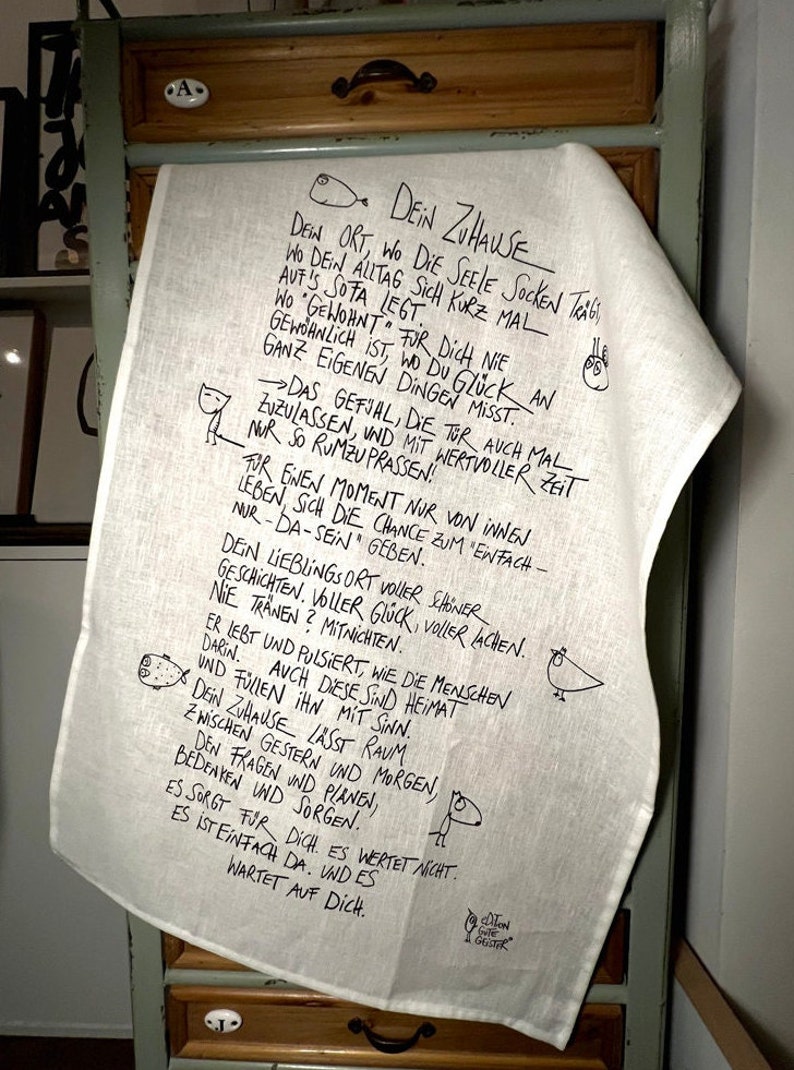 A
DEIN ZUHAUSE
DEIN ORT, WO DIE SEELE SOCKEN TRÄGT,
WO DEIN ALLTAG SICH KURZ MAL
AUF'S SOFA LEGT.
WO "GEWOHNT" FÜR DICH NIE
GEWÖHNLICH IST, WO DU GLÜCK AN
GANZ EIGENEN DINGEN MISST.
→DAS GEFÜHL, DIE TÜR AUCH MAL
ZUZULASSEN, UND MIT WERTVOLLER ZEIT
NUR SO RUMZUPRASSEN!
FÜR EINEN MOMENT NUR VON INNEN
LEBEN SICH DIE CHANCE ZUM "EINFACH-
NUR-DA-SEIN" GEBEN.
DEIN LIEBLINGSORT VOLLER SCHÖNER
GESCHICHTEN. VOLLER GLÜCK, VOLLER LACHEN.
NIE TRÄNEN? MITNICHTEN.
ER LEBT UND PULSIERT, WIE DIE MENSCHEN
DARIN. AUCH DIESE SIND HEIMAT
UND FÜLLEN IHN MIT SINN.
DEIN ZUHAUSE LÄSST RAUM
ZWISCHEN GESTERN UND MORGEN,
DEN FRAGEN UND PLÄNEN,
BEDENKEN UND SORGEN.
ES SORGT FÜR DICH. ES WERTET NICHT.
ES IST EINFACH DA. UND ES
WARTET AUF DICH.
EDITION
GUTE
GEISTER®
J